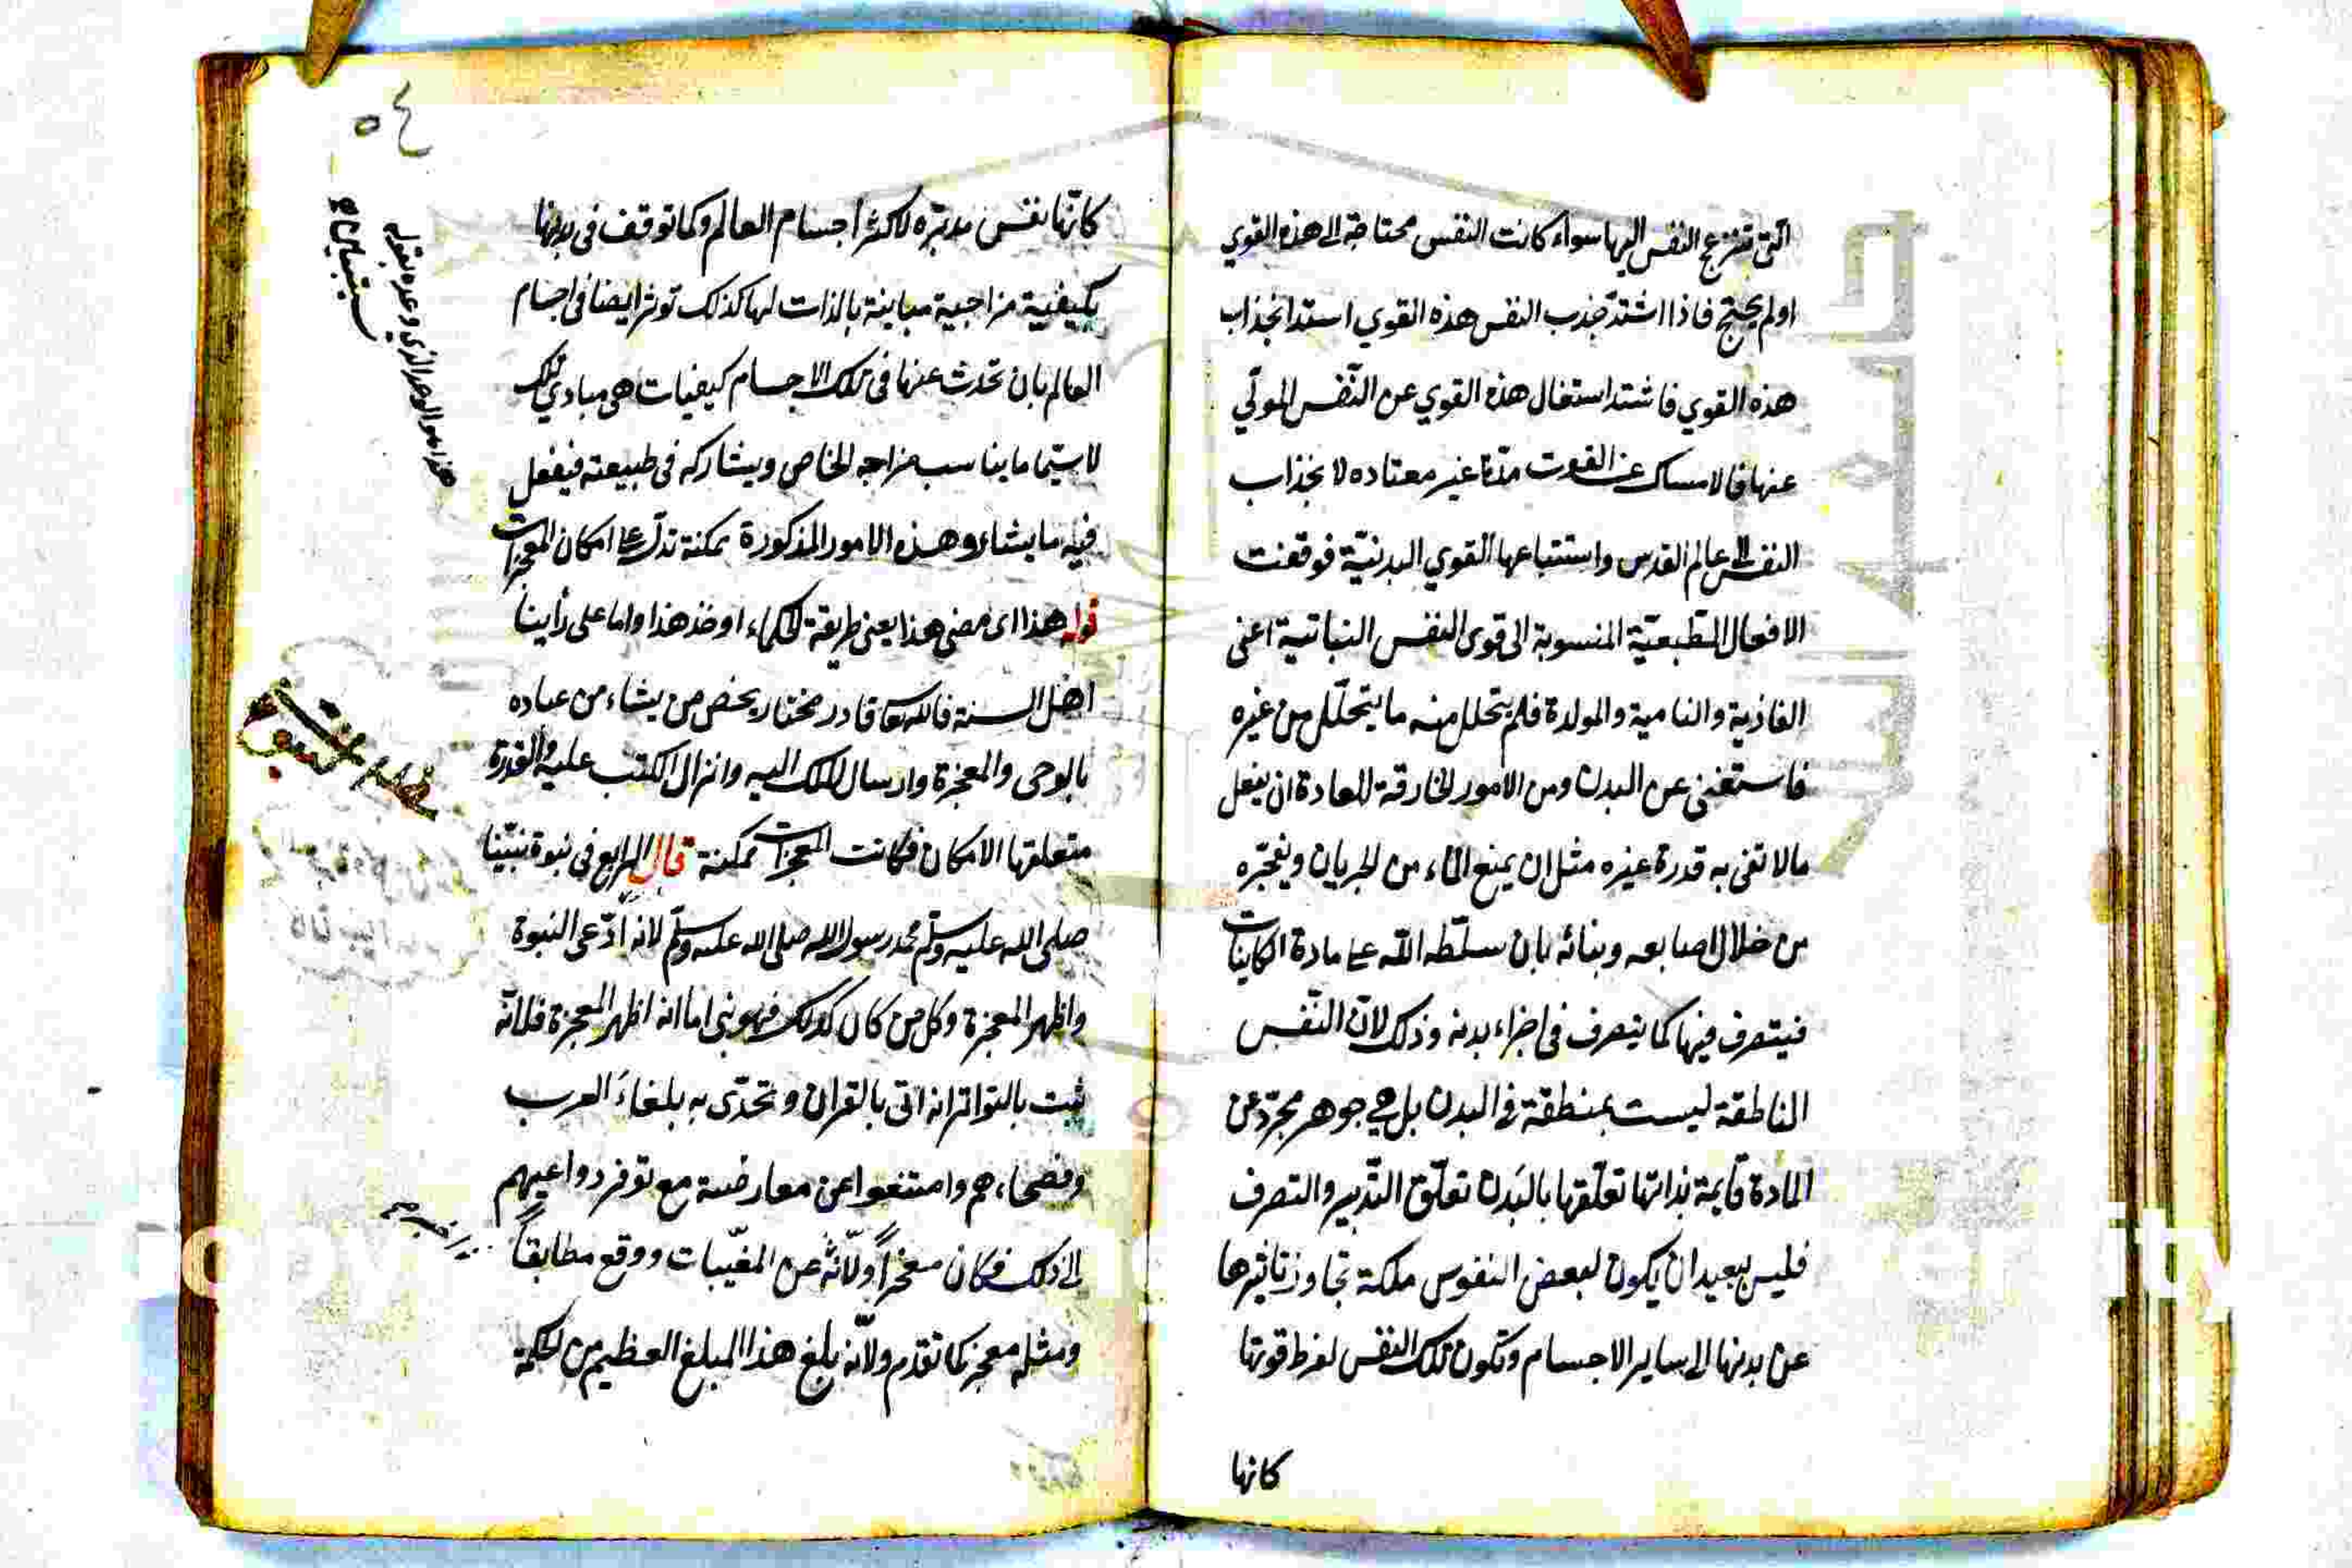 التى تنزع النفس اليها سواء كانت النفس محتاجة الى هذه القوي
اولم يحتج فاذا اشتد جذب النفس هذه القوي استد انجذاب
هذه القوي فاشتد استغال هذه القوي عن النفس المولّي
عنها فالامساك عن القوت مدة غير معتاده لا نجذاب
النفس الى عالم القدس واستتباعها القوي البدنيّة فوقفت
الافعال الطبيعيّة المنسوبة الى قوى النفس النباتية اعنى
الغاذية والنامية والمولدة فلم يتحلل منه ما يتحلّل من غيره
فاستغنى عن البدل ومن الامور الخارقة للعادة ان يفعل
مالا تفى به قدرة غيره مثل ان يمنع الماء من الجريان ويفجّره
من خلال اصابعه وبنانه بان سلّطه اللّه على مادة الكاينات
فيتصرف فيها كما يتصرف فى اجزاء بدنه وذلك لانّ النّفس
الناطقة ليست بمنطقة فى البدن بل هي جوهر مجرّد عن
المادة قايمة بذاتها تعلّقها بالبدن تعلّق التّدبير والتصرف
فليس ببعيد ان يكون لبعض النفوس ملكة تجاوز تاثيرها
عن بدنها الى ساير الاجسام وتكون تلك النفس لفرط قوتها
كانها
٥٤
كانّها نفس مدبّره لاكثر اجسام العالم وكما توقف فى بدنها
بكيفية مزاجية مباينة بالذات لها كذلك توثر ايضا فى اجسام
العالم بان تحدث عنها فى تلك الاجسام كيفيات هى مبادي تلك
لاسيّما ما يناسب مزاجه الخاص ويشاركه فى طبيعته فيفعل
فيه ما يشاء وهذه الامور المذكورة ممكنة تدلّ على امكان المعجزات
قوله هذا اى مضى هذا يعنى طريقة الحكماء او خذ هذا واما على رأينا
اهل السنة فالله تعا قادر مختار يخص من يشاء من عباده
بالوحى والمعجزة وارسال الملك اليه وانزال الكتب عليه والقدرة
متعلقها الامكان فكانت المعجزات ممكنة قال الرابع فى نبوة نبيّنا
صلى الله عليه وسلّم محمد رسول الله صلى الله عليه وسلّم لانه ادّعى النبوة
واظهر المعجزة وكل من كان كذلك فهو نبى اما انه اظهر المعجزة فلانّه
ثبت بالتواتر انه اتى بالقران وتحدّى به بلغاء العرب
وفصحاءهم وامتنعوا عن معارضته مع توفر دواعيهم
الى ذلك فكان معجزاً ولانّه عن المغيّبات ووقع مطابقاً
ومثله معجز كما تقدم ولانّه بلغ هذا المبلغ العظيم من الحكمة
هذا هو الوعد الذي وعده بقوله